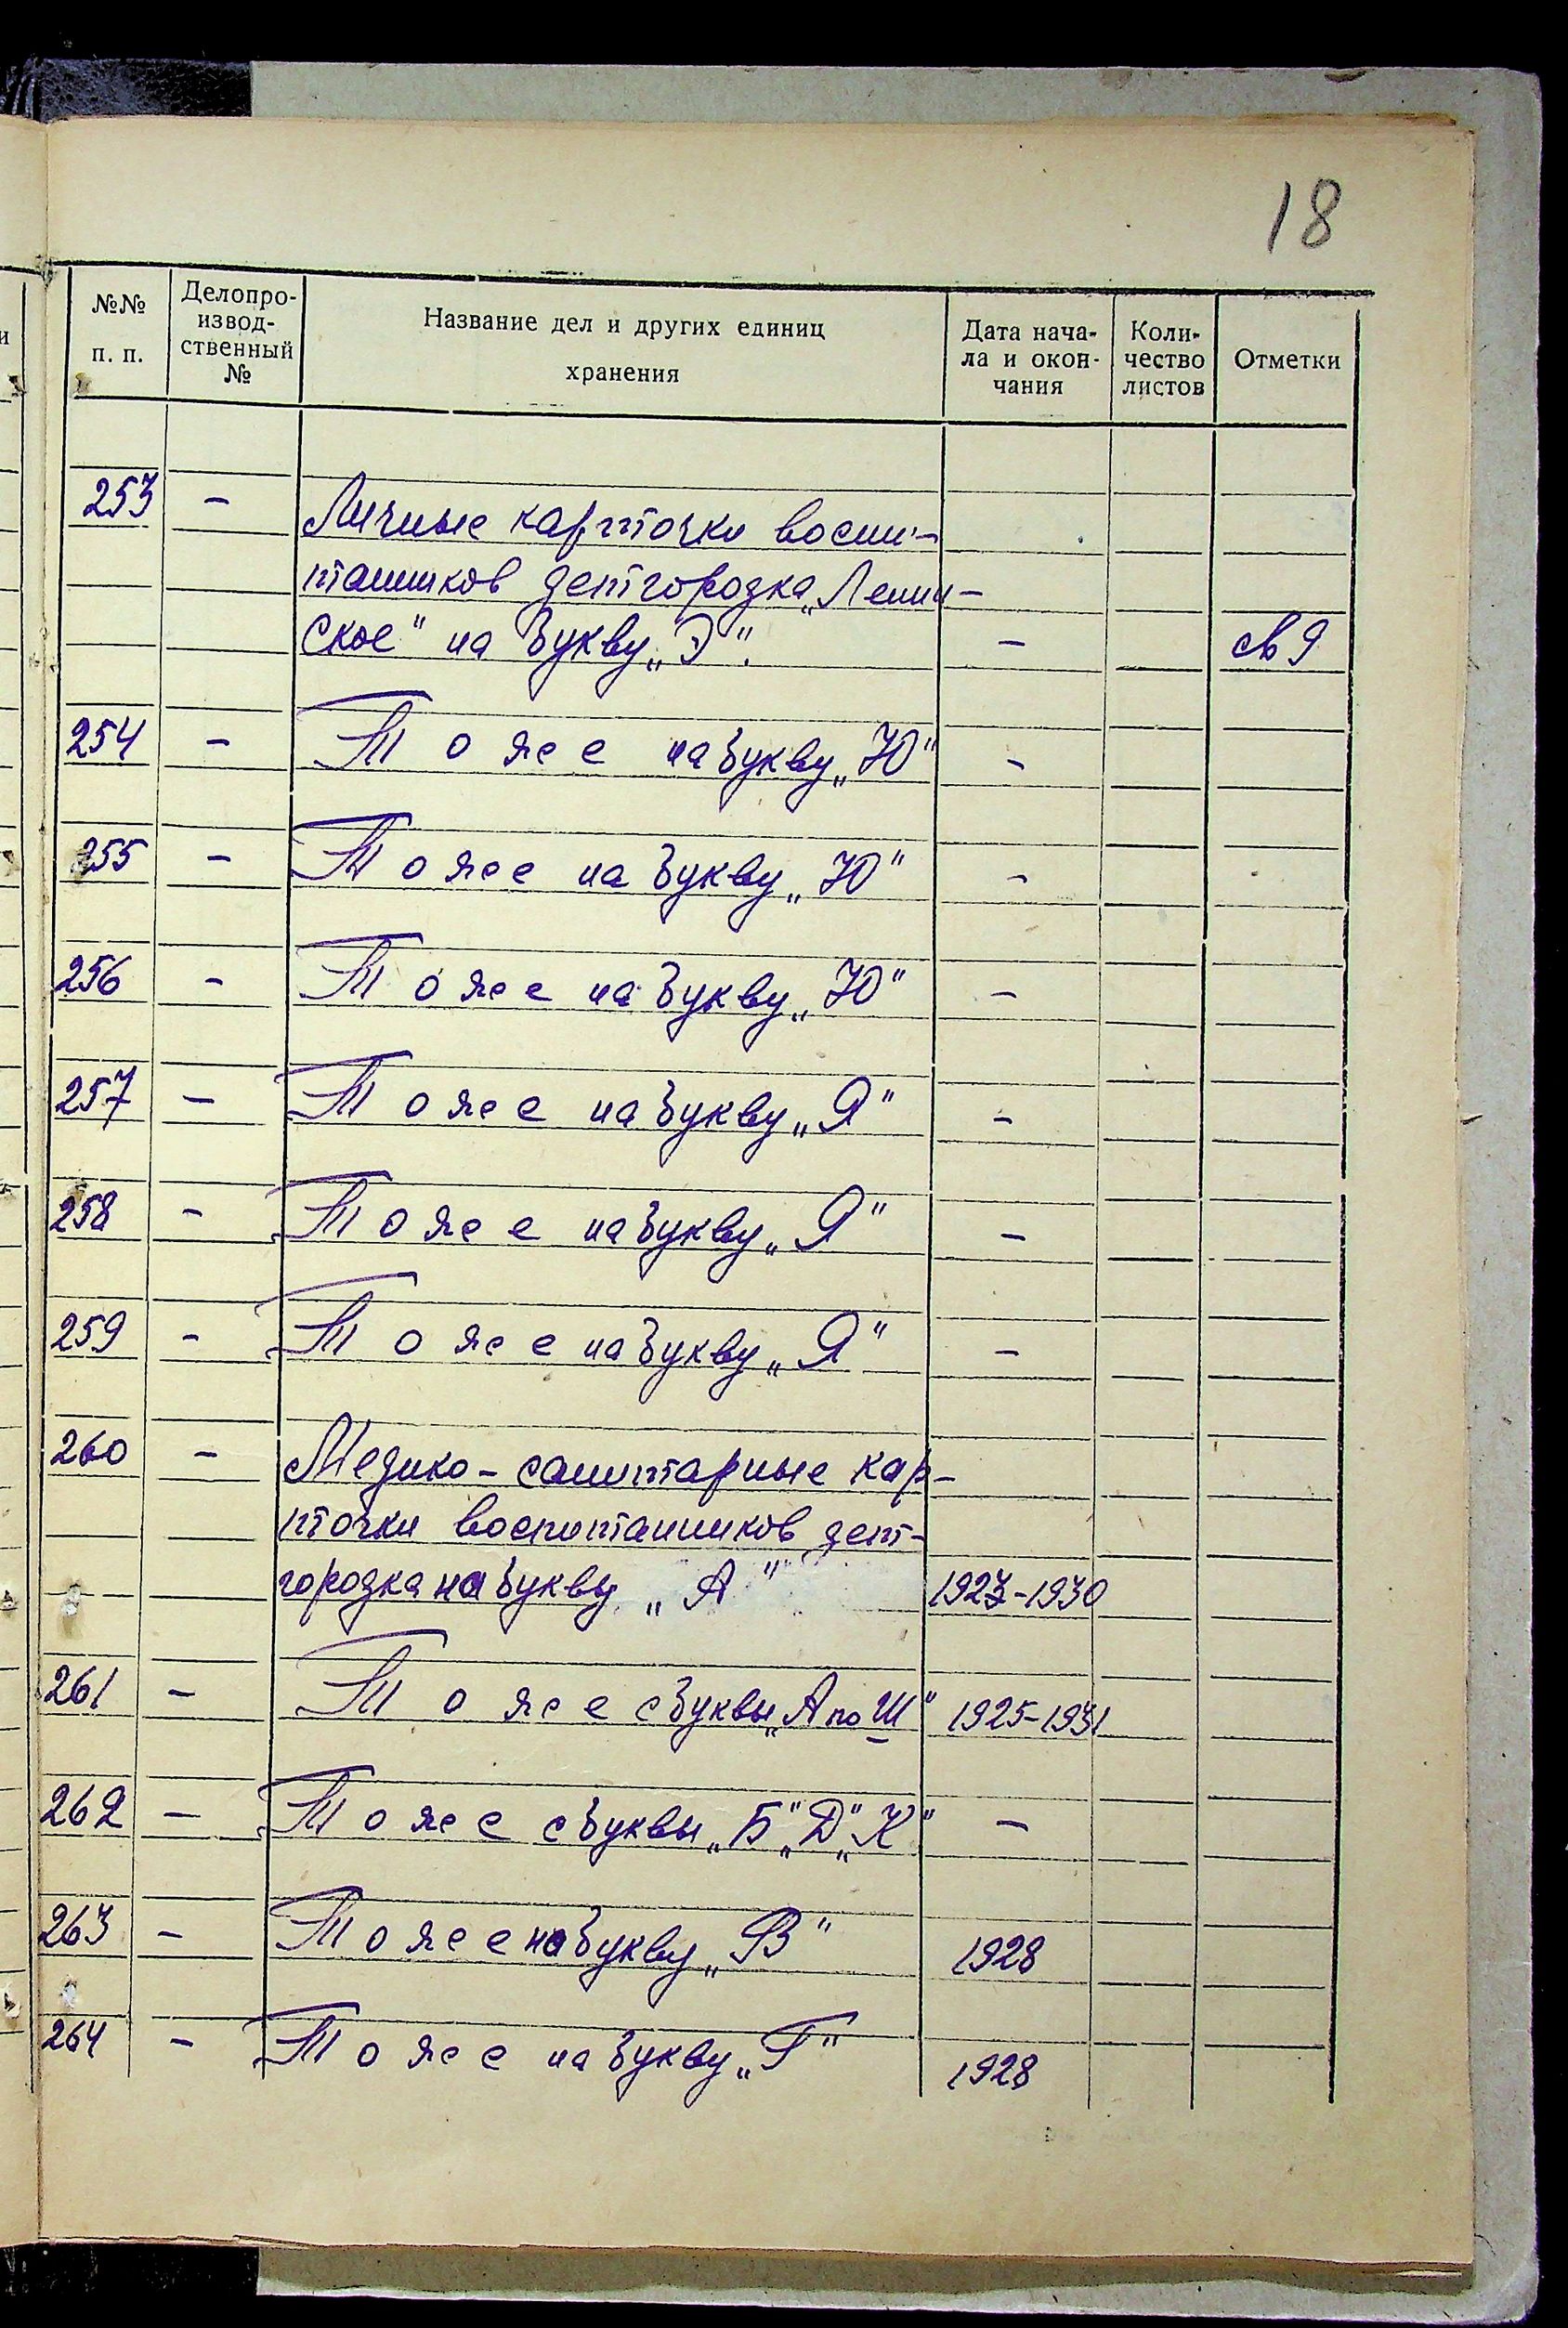 18
№№ п. п.
Делопро-
извод-
ственный
№
Название дел и других единиц
хранения
Дата нача-
ла и окон-
чания
Коли-
чество
листов
Отметки
253 - Личные карточки воспи-
танников детгородка „Ленин-
ское" на букву „Э". -
254 - То же на букву „Ю" -
255 - То же на букву „Ю" -
256 - То же на букву „Ю" -
257 - То же на букву „Я" -
258 - То же на букву „Я" -
259 - То же на букву „Я" -
260 - Медико-санитарные кар-
точки воспитанников дет-
городка на букву „А" 1927-1930
261 - То же с буквы „А по Ш" 1925-1931
262 - То же с буквы „Б" „Д" „К" -
263 - То же на букву „В" 1928
264 - То же на букву „Г" 1928